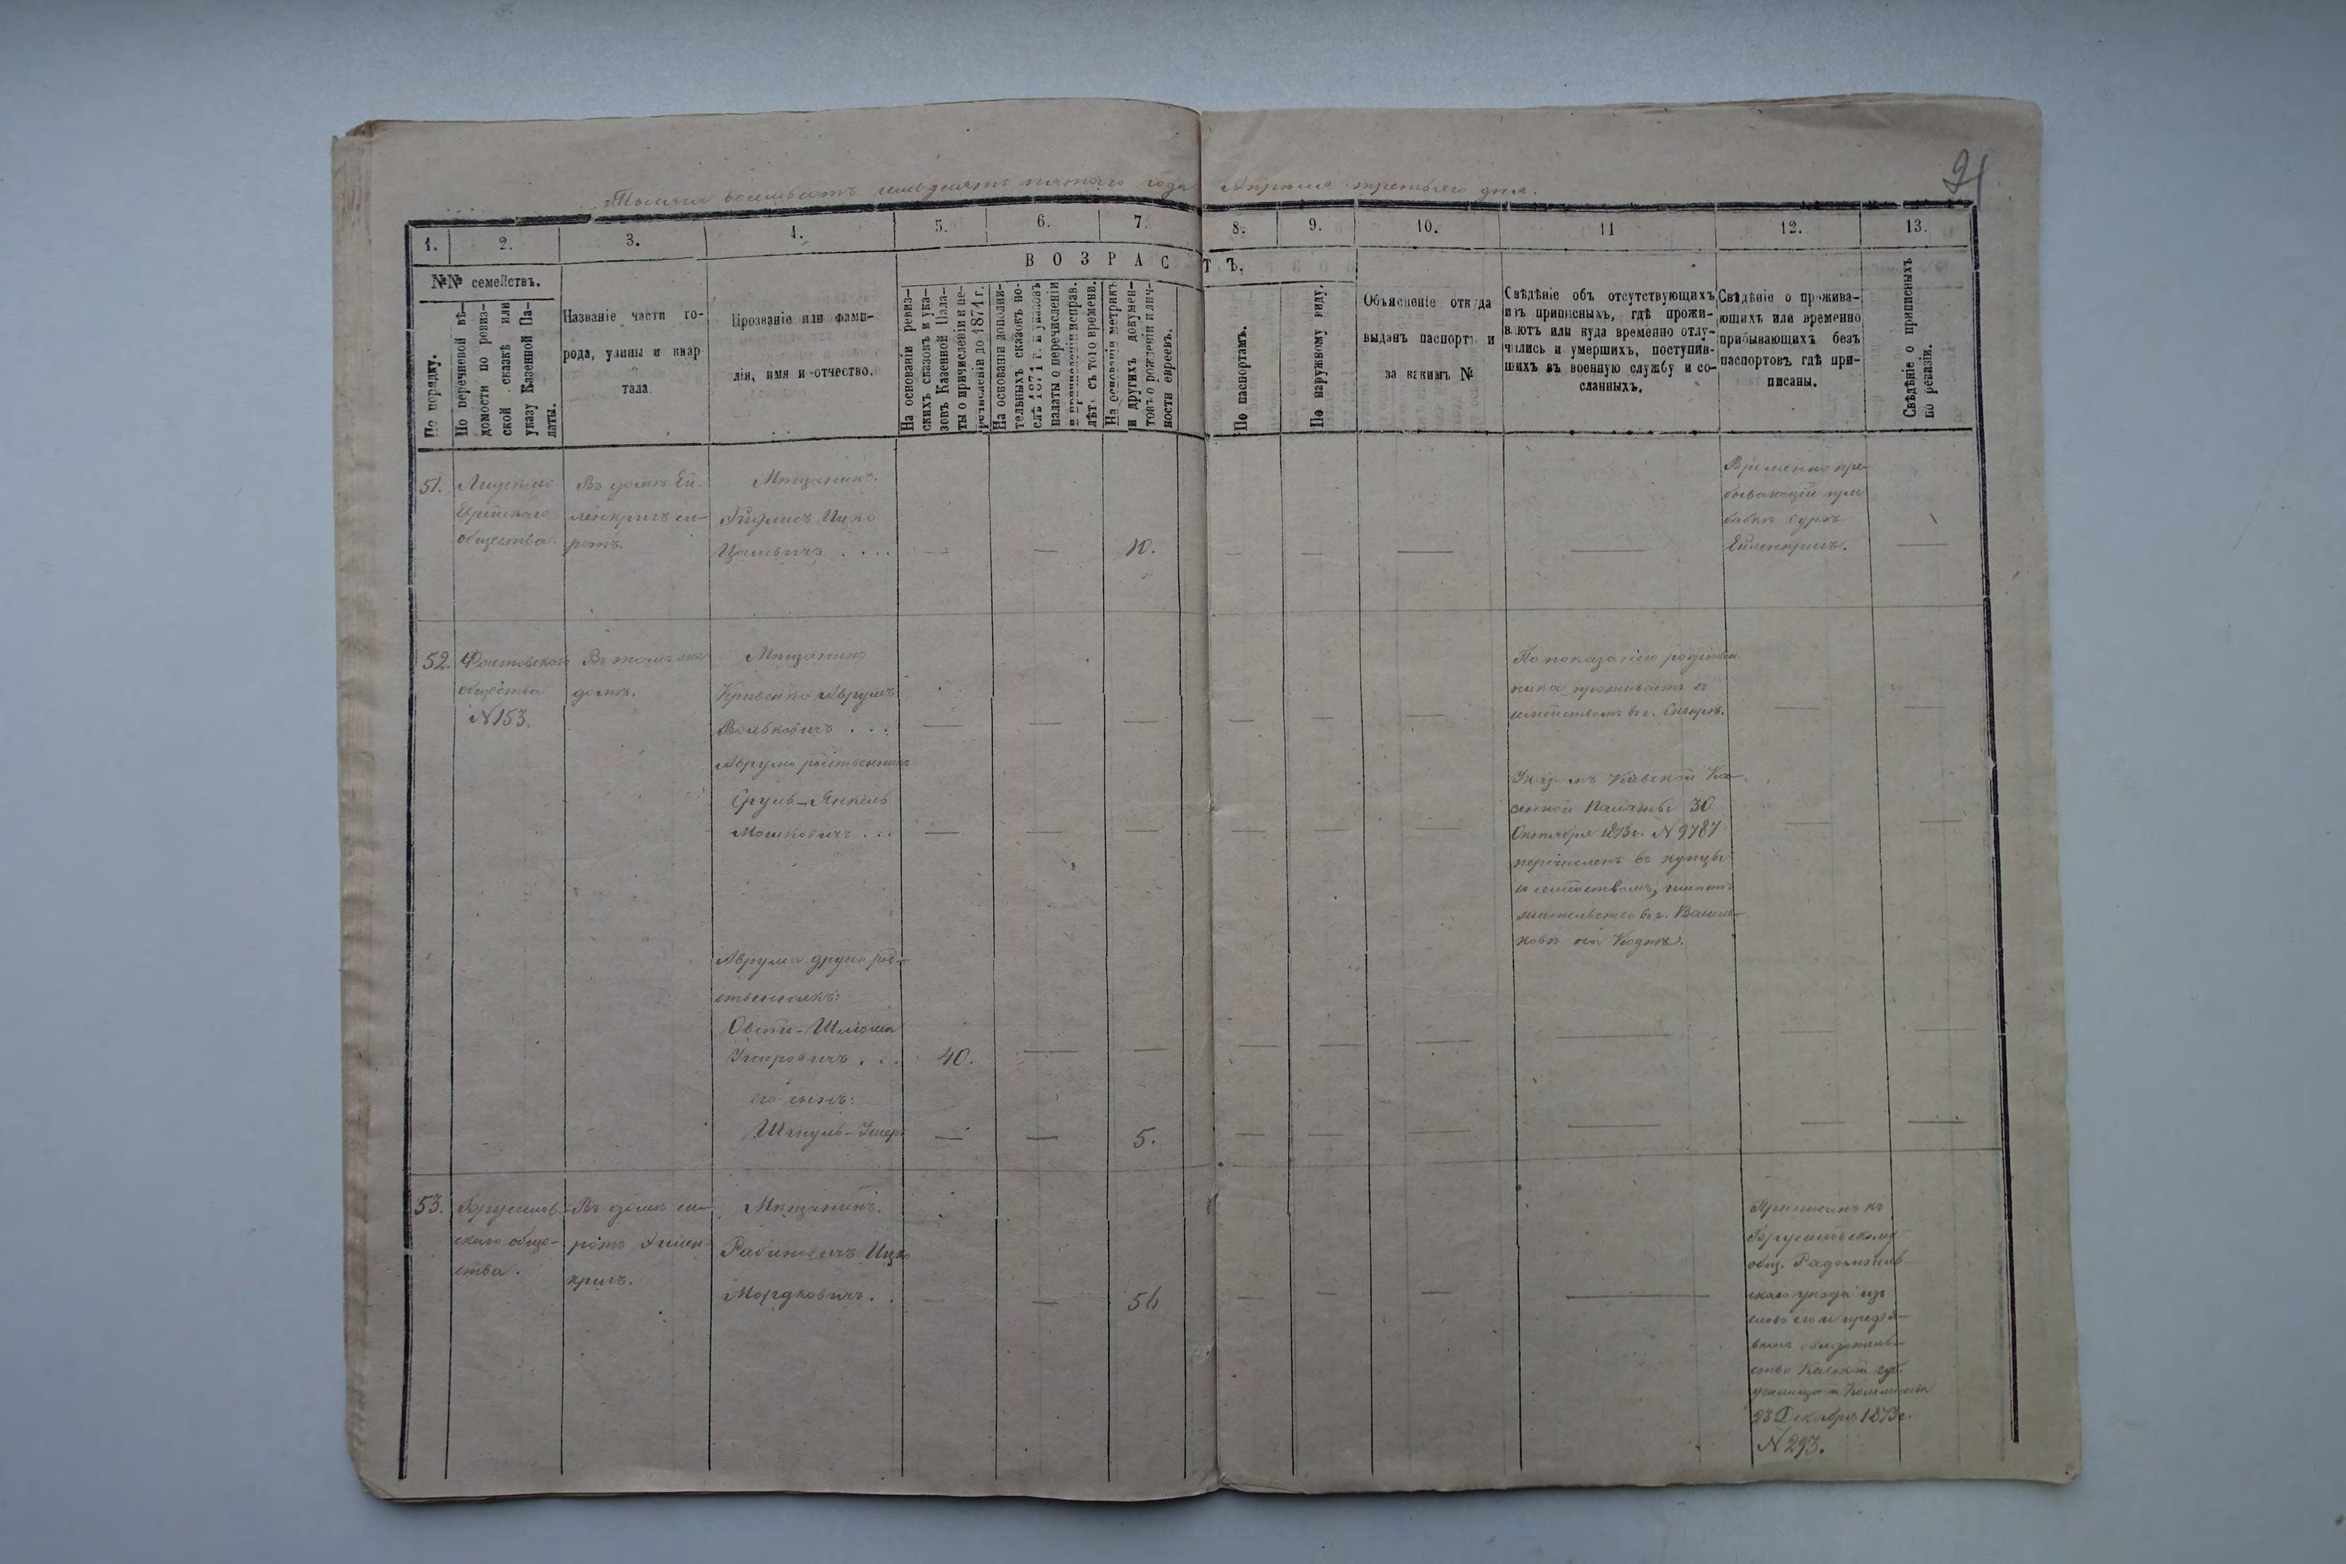 21
Тысяча восемьсотъ семьдесятъ пятаго года Апрѣля третьяго дня.
1. 2. 3. 4. 5. 6. 7. 8. 9. 10. 11 12. 13.
ВОЗРАСТЪ.
№№ семействъ.
По порядку.
По перечневой вѣ-
домости по ревиз-
ской сказкѣ или
указу Казенной Па-
латы.
Названіе части го-
рода, улицы и квар
тала.
Прозваніе или фами-
лія, имя и отчество.
На основаніи ревиз-
скихъ сказокъ и ука-
зовъ Казенной Пала-
ты о причисленіи и пе-
речисленіи до 1871 г.
На основаніи дополни-
тельныхъ сказокъ по-
слѣ 1871 г. и указовъ
палаты о перечисленіи
и причисленіи исправ.
лѣтъ съ того времени.
На основаніи метрикъ
и другихъ докумен-
товъ о рожденіи и лич-
ности евреевъ.
По паспортамъ.
По наружному виду.
Объясненіе откуда
выданъ паспортъ и
за какимъ №
Свѣдѣніе объ отсутствующихъ
изъ приписныхъ, гдѣ прожи-
ваютъ или куда временно отлу-
чились и умершихъ, поступив-
шихъ въ военную службу и со-
сланныхъ.
Свѣдѣніе о прожива-
ющихъ или временно
прибывающихъ безъ
паспортовъ гдѣ при-
писаны.
Свѣдѣніе о приписныхъ
по ревизіи.
51.
Еврейскаго
общества.
Въ домѣ Ей-
ленкригъ си-
ротъ.
Мѣщанинъ.
Ицко
10.
Временно пре-
бывающій при
бабкѣ Суркѣ
Ейленкригъ.
52.
Фастовскаго
общества
N 153.
Въ томъ же
домѣ.
Мѣщанинъ
Кривенко Аврумъ
Вольковичъ . . .
Аврума родственникъ
Сруль-Янкель
Мошковичъ . . .
Аврума другій род-
ственникъ:
Овсій-Шлiома
Ушеровичъ . . .
40.
его сынъ:
Шмуль-Ушеръ
5.
По показанію родствен
ника проживаетъ съ
семействомъ въ г.
Указомъ Кіевской Ка-
зенной Палаты 30
Октября 1873 г. N 9787
перечисленъ въ купцы
съ семействомъ, имѣетъ
жительство въ г. Василь-
ковѣ на
53.
Брусилов-
скаго обще-
ства.
Въ домѣ си-
ротъ Эйлен
кригъ.
Мѣщанинъ.
Рабиновичъ Ицко
Мордковичъ. .
56
Приписанъ къ
Брусиловскому
общ. Радомысль
скаго уѣзда
предъя-
вилъ свидѣтель-
ство Кіевской губ.
училищной Коммисіи
23 Декабря 1873 г.
N 293.